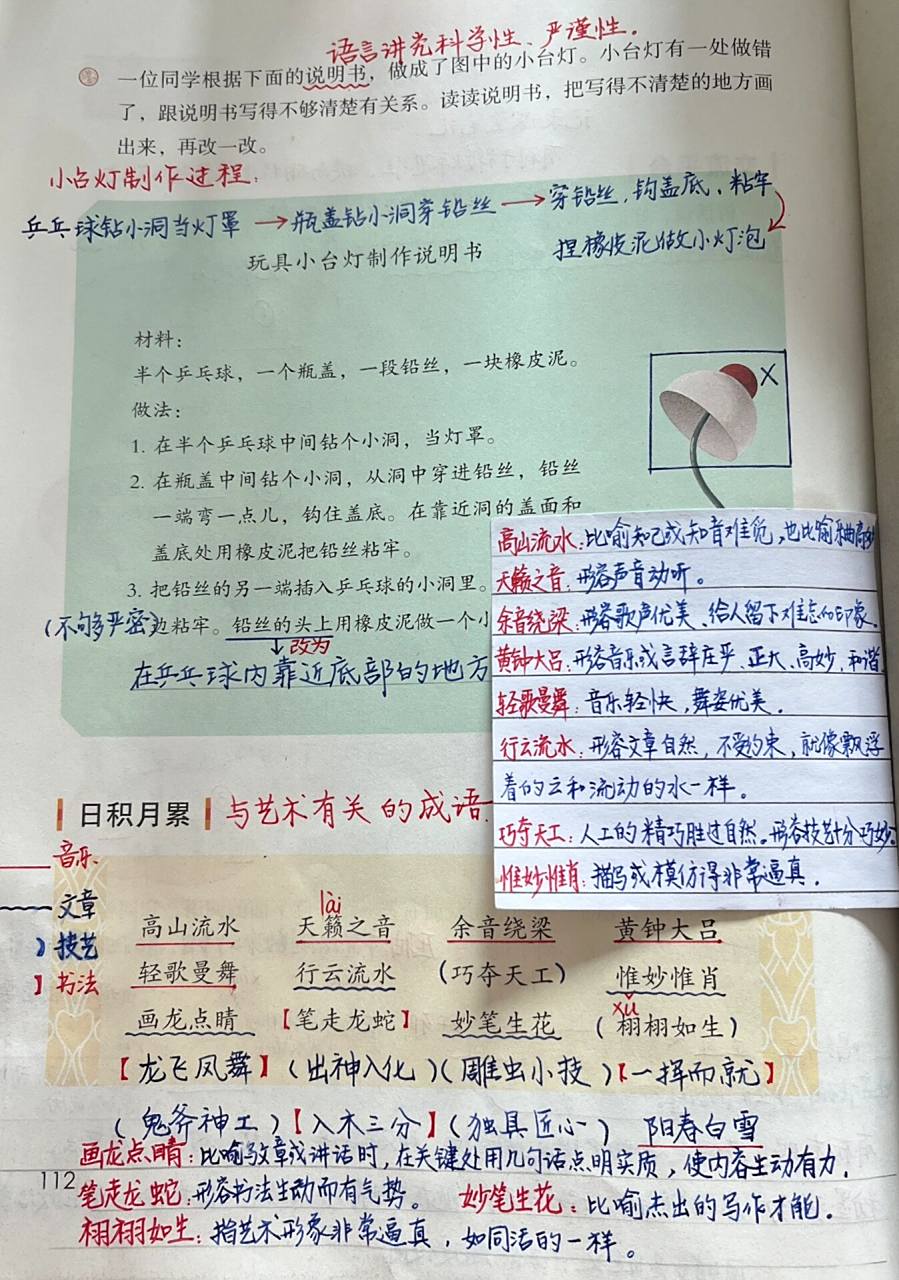 语言讲究科学性、严谨性.
一位同学根据下面的说明书，做成了图中的小台灯。小台灯有一处做错
了，跟说明书写得不够清楚有关系。读读说明书，把写得不清楚的地方画
出来，再改一改。
小台灯制作过程：
乒乓球钻小洞当灯罩 → 瓶盖钻小洞穿铅丝 → 穿铅丝，钩盖底，粘牢
捏橡皮泥做小灯泡
玩具小台灯制作说明书
材料：
半个乒乓球，一个瓶盖，一段铅丝，一块橡皮泥。
做法：
1. 在半个乒乓球中间钻个小洞，当灯罩。
2. 在瓶盖中间钻个小洞，从洞中穿进铅丝，铅丝
一端弯一点儿，钩住盖底。在靠近洞的盖面和
盖底处用橡皮泥把铅丝粘牢。
3. 把铅丝的另一端插入乒乓球的小洞里。
(不够严密)边粘牢。铅丝的头上用橡皮泥做一个小
↓改为
在乒乓球内靠近底部的地方
X
高山流水：比喻知己或知音难觅，也比喻乐曲高妙
天籁之音：形容声音动听。
余音绕梁：形容歌声优美，给人留下难忘的印象.
黄钟大吕：形容音乐或言辞庄严、正大、高妙、和谐
轻歌曼舞：音乐轻快，舞姿优美.
行云流水：形容文章自然，不受约束，就像飘浮
着的云和流动的水一样。
巧夺天工：人工的精巧胜过自然。形容技艺十分巧妙.
惟妙惟肖：描写或模仿得非常逼真.
日积月累 与艺术有关的成语
音乐
文章
) 技艺
】书法
lài
高山流水 天籁之音 余音绕梁 黄钟大吕
轻歌曼舞 行云流水 (巧夺天工) 惟妙惟肖
xǔ
画龙点睛 【笔走龙蛇】 妙笔生花 (栩栩如生)
【龙飞凤舞】(出神入化)(雕虫小技)【一挥而就】
(鬼斧神工)【入木三分】(独具匠心) 阳春白雪
画龙点睛：比喻写文章或讲话时，在关键处用几句话点明实质，使内容生动有力.
112
笔走龙蛇：形容书法生动而有气势。 妙笔生花：比喻杰出的写作才能.
栩栩如生：指艺术形象非常逼真，如同活的一样。